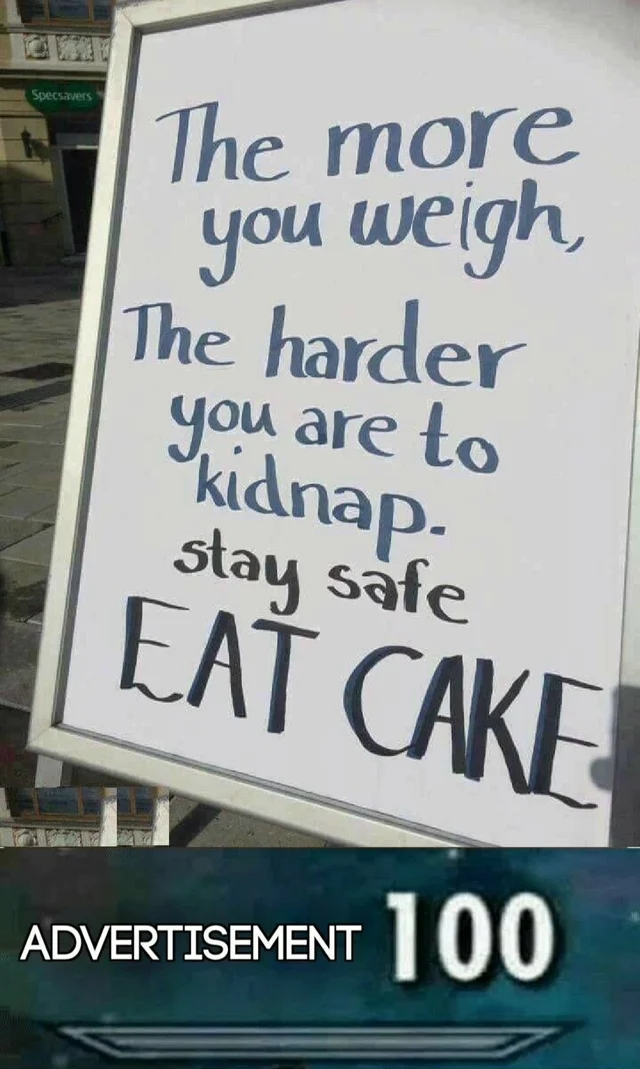 Specsavers
The more
you weigh,
The harder
you are to
kidnap.
stay safe
EAT CAKE
ADVERTISEMENT 100